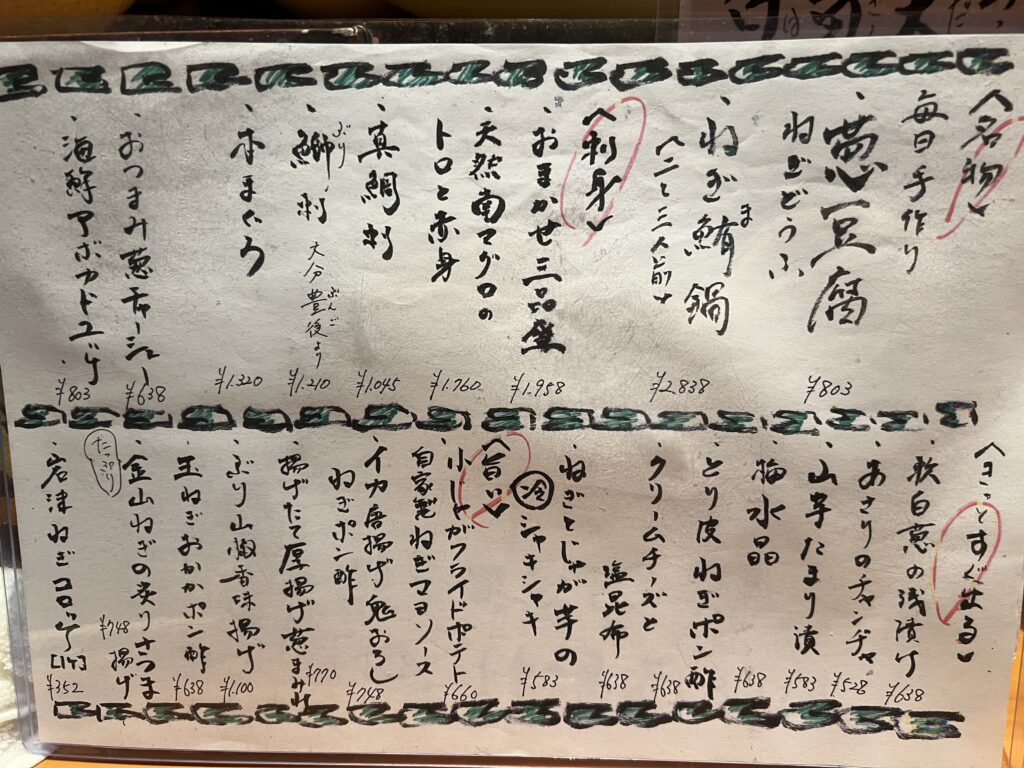 〈名物〉
毎日手作り
葱豆腐
ねぎどうふ
¥803
ねぎ鮪鍋
ま
〈二〜三人前〉
¥2.838
〈刺身〉
・おまかせ三品盛
¥1.958
・天然南マグロの
トロと赤身
¥1.760
・真鯛刺
¥1.045
・鰤刺
ぶり
大分豊後より
ぶんご
¥1.210
・本まぐろ
¥1.320
・おつまみ葱チャーシュー
¥638
・海鮮アボカドユッケ
¥803
〈きっとすぐ出る〉
・軟白葱の浅漬け
¥638
・あさりのチャンヂャ
¥528
・山芋たまり漬
¥583
・梅水晶
¥638
・とり皮ねぎポン酢
¥638
・クリームチーズと
塩昆布
¥638
・ねぎとじゃが芋の
冷シャキシャキ
¥583
〈旨い〉
・小じゃがフライドポテト
自家製ねぎマヨソース
¥660
・イカ唐揚げ鬼おろし
ねぎポン酢
¥748
・揚げたて厚揚げ葱まみれ
¥770
・ぶり山椒香味揚げ
¥1.100
・玉ねぎおかかポン酢
¥638
・金山ねぎの炙りさつま
揚げ
¥748
たっぷり
・岩津ねぎコロッケ
[1ケ]
¥352